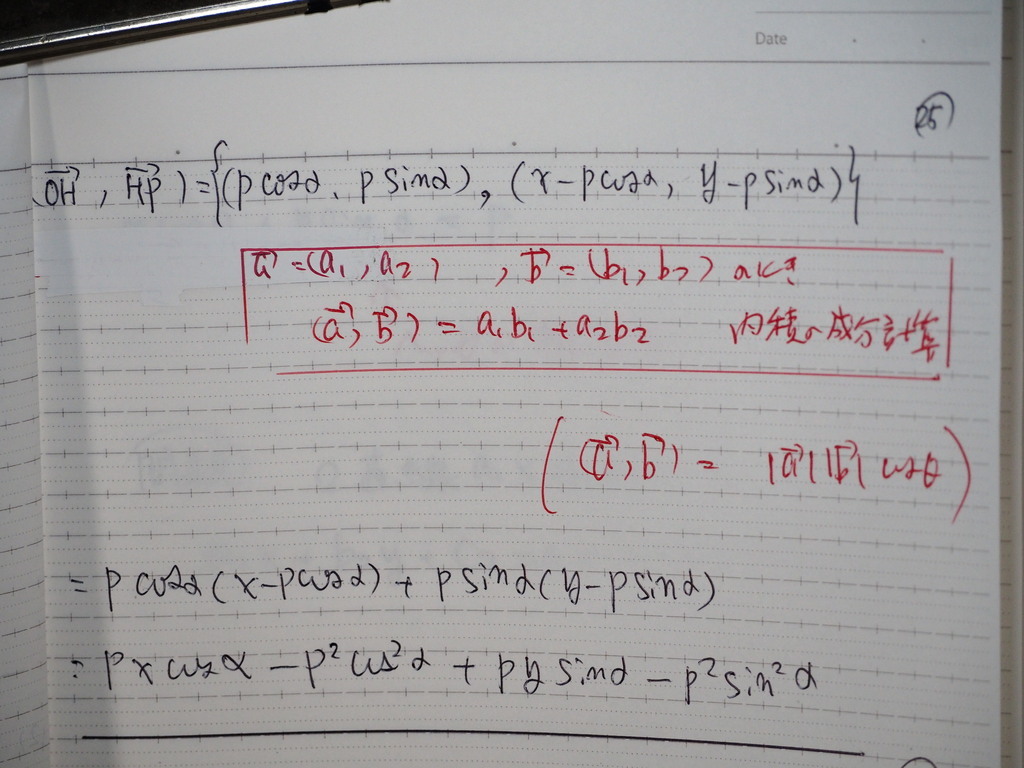 Date
25
(OH⃗, HP⃗) = {(p cosα, p sinα), (x-p cosα, y-p sinα)}
a⃗ = (a₁, a₂), b⃗ = (b₁, b₂) のとき
(a⃗, b⃗) = a₁b₁ + a₂b₂ 内積の成分計算
((a⃗, b⃗) = |a⃗||b⃗| cosθ)
= p cosα (x-p cosα) + p sinα (y-p sinα)
= p x cosα - p² cos²α + p y sinα - p² sin²α